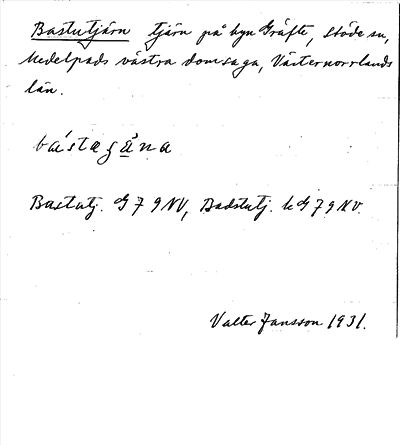 Bastutjärn tjärn på byn Gräfte, Stöde sn,
Medelpads västra domsaga, Västernorrlands
län.
Bastutj. G 7 9 NV, Badstutj. k G 7 9 NV.
Valter Jansson 1931.